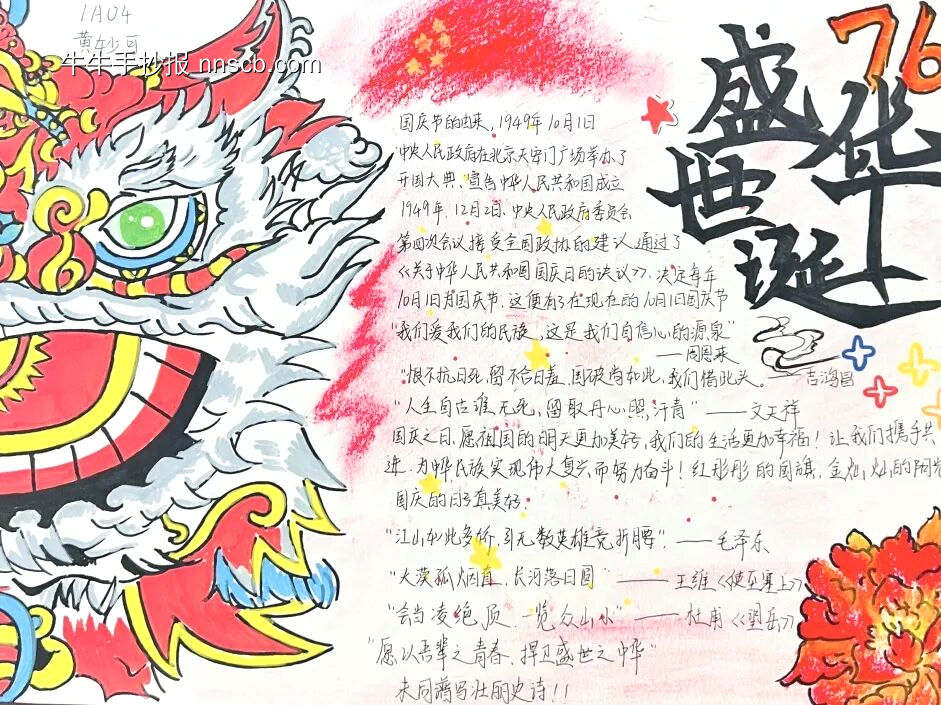 1A04
牛牛手抄报 nnscb.com
76
盛世华诞
国庆节的由来,1949年10月1日
中央人民政府在北京天安门广场举办了
开国大典、宣告中华人民共和国成立
1949年.12月2日、中央人民政府委员会
第四次会议接受全国政协的建议通过了
《关于中华人民共和国国庆日的决议》、决定每年
10月1日为国庆节.这便有了在现在的10月1日国庆节
"我们爱我们的民族,这是我们自信心的源泉"
——周恩来
"恨不抗日死,留作今日羞,国破尚如此,我们惜此头。——吉鸿昌
"人生自古谁无死,留取丹心照汗青"——文天祥
国庆之日,愿祖国的明天更加美好,我们的生活更加幸福!让我们携手共
进.为中华民族实现伟大复兴而努力奋斗!红彤彤的国旗,金灿灿的阳光
国庆的日子真美好.
"江山如此多娇.引无数英雄竞折腰".——毛泽东
"大漠孤烟直.长河落日圆"——王维《使至塞上》
"会当凌绝顶.一览众山小"——杜甫《望岳》
"愿以吾辈之青春.捍卫盛世之中华"
共同谱写壮丽史诗!!